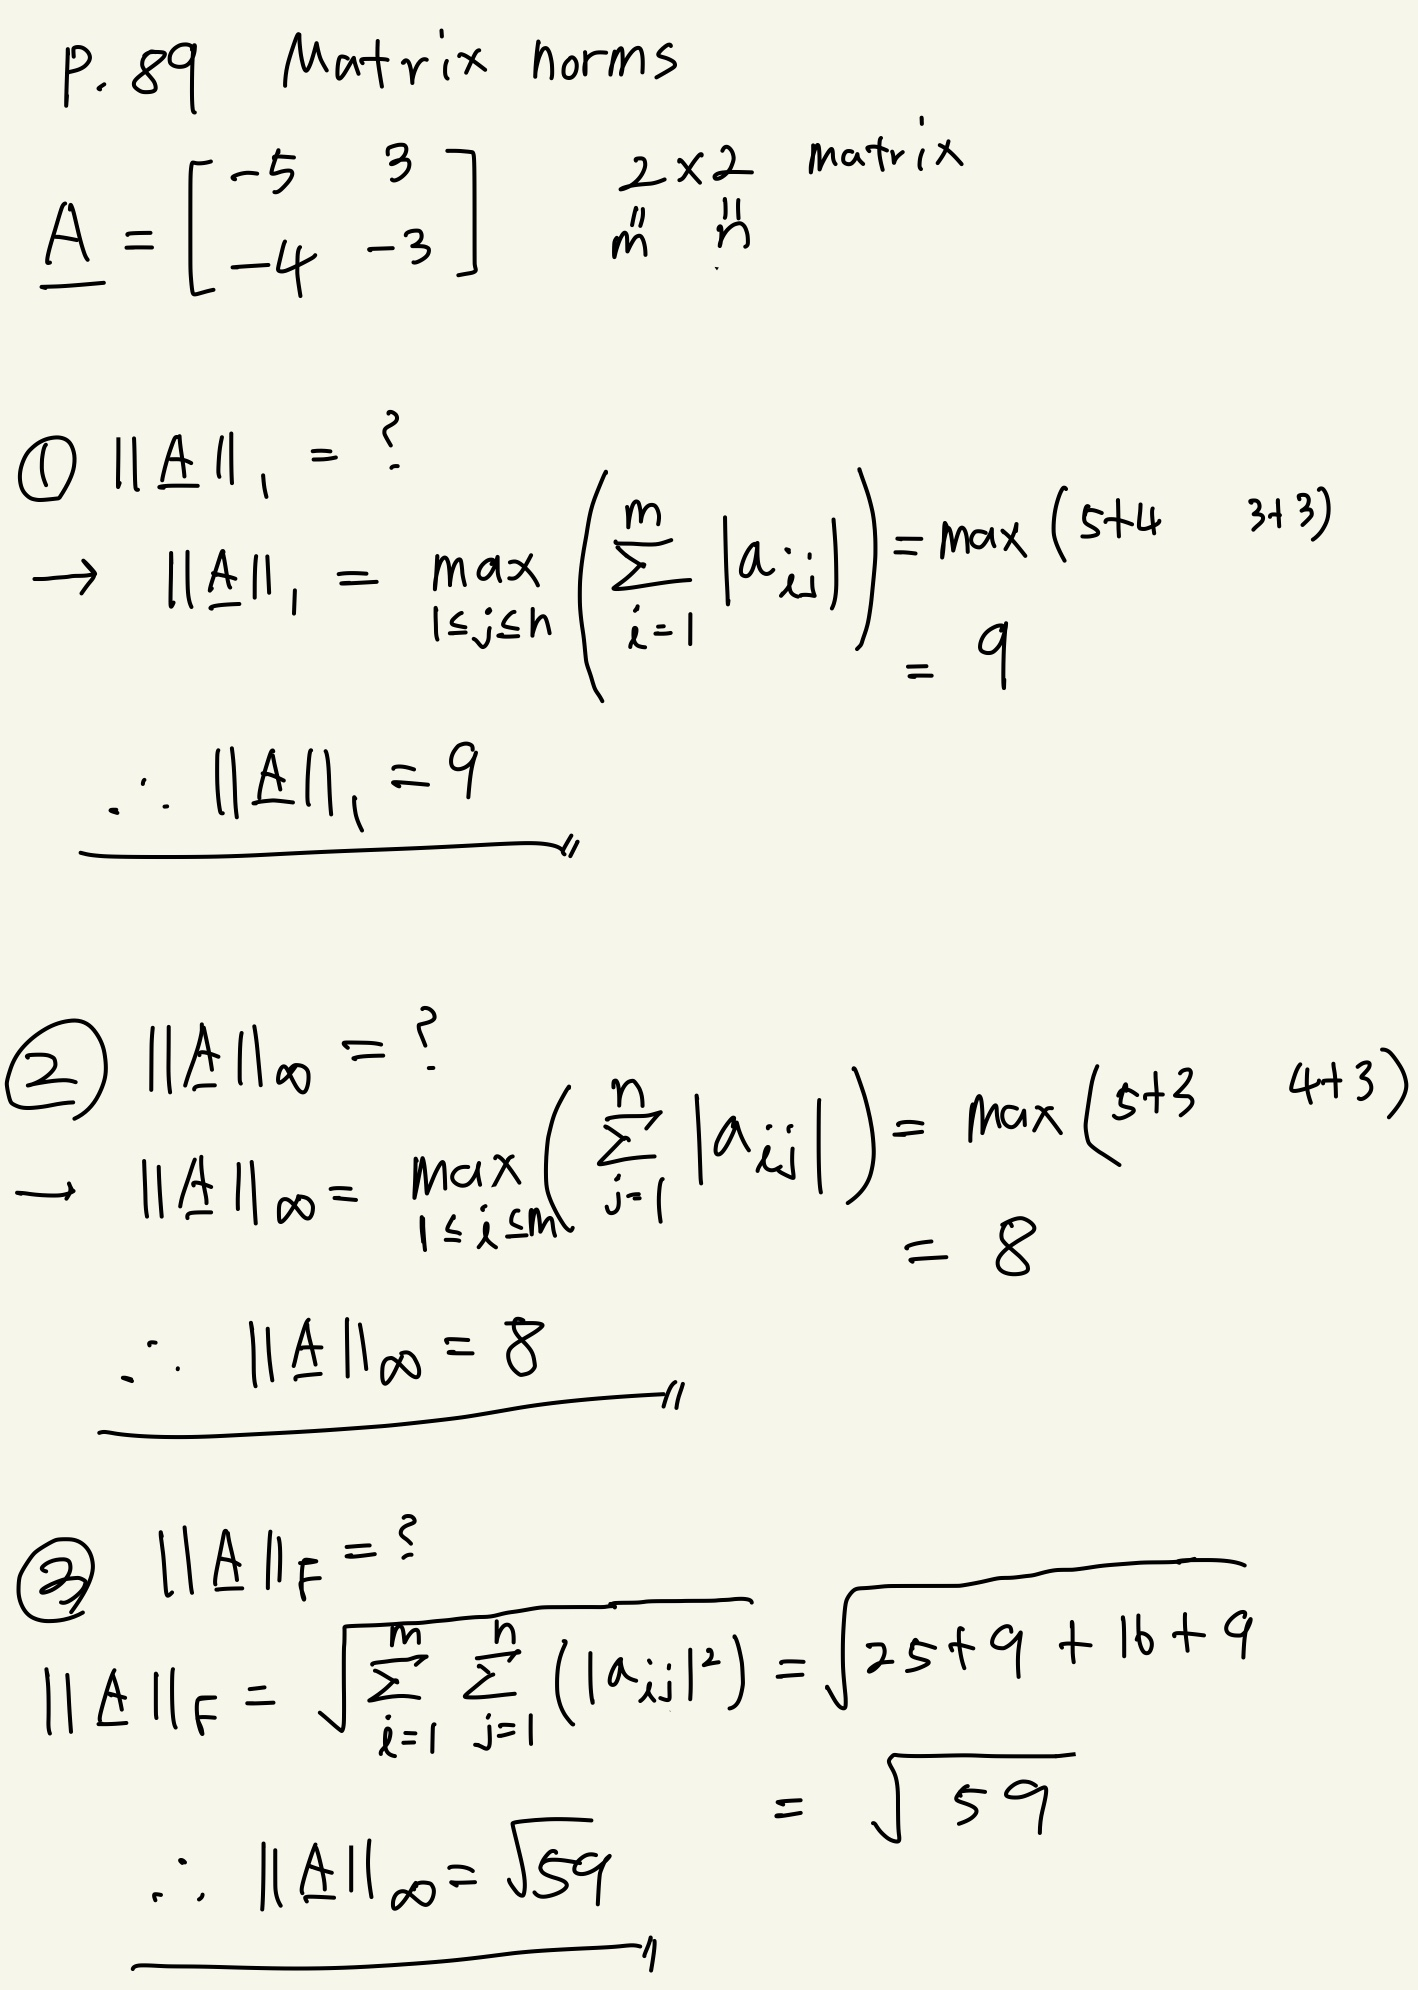 P. 89 Matrix norms
A = [ -5 3 ; -4 -3 ] 2×2 matrix
m n
① ||A||₁ = ?
→ ||A||₁ = max 1≤j≤n ( Σ i=1 m |aij| ) = max (5+4 3+3)
= 9
∴ ||A||₁ = 9
② ||A||∞ = ?
→ ||A||∞ = max 1≤i≤m ( Σ j=1 n |aij| ) = max (5+3 4+3)
= 8
∴ ||A||∞ = 8
③ ||A||F = ?
||A||F = √( Σ i=1 m Σ j=1 n (|aij|²) ) = √(25+9+16+9)
= √59
∴ ||A||∞ = √59